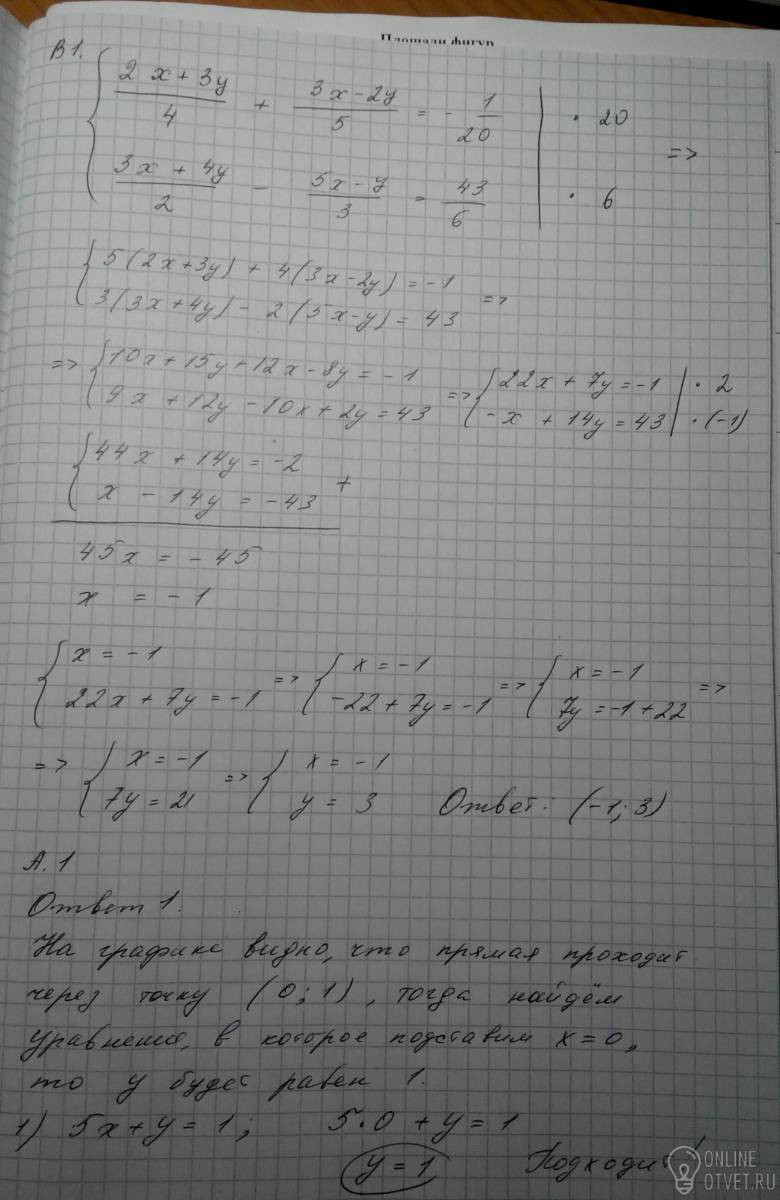 Площади фигур
В 1.
{ (2x + 3y)/4 + (3x - 2y)/5 = - 1/20 | · 20
=>
{ (3x + 4y)/2 - (5x - y)/3 = 43/6 | · 6
{ 5(2x+3y) + 4(3x-2y) = -1
=>
{ 3(3x+4y) - 2(5x-y) = 43
=> { 10x+15y+12x-8y = -1 => { 22x + 7y = -1 | · 2
{ 9x + 12y - 10x + 2y = 43 { -x + 14y = 43 | · (-1)
{ 44x + 14y = -2
+
{ x - 14y = -43
45x = -45
x = -1
{ x = -1 => { x = -1 => { x = -1 =>
{ 22x + 7y = -1 { -22 + 7y = -1 { 7y = -1 + 22
=> { x = -1 => { x = -1
{ 7y = 21 { y = 3 Ответ: (-1; 3)
А. 1
Ответ 1.
На графике видно, что прямая проходит
через точку (0; 1), тогда найдём
уравнение, в которое подставим x = 0,
то y будет равен 1.
1) 5x + y = 1; 5·0 + y = 1
y = 1 Подходит!
ONLINE
OTVET.RU